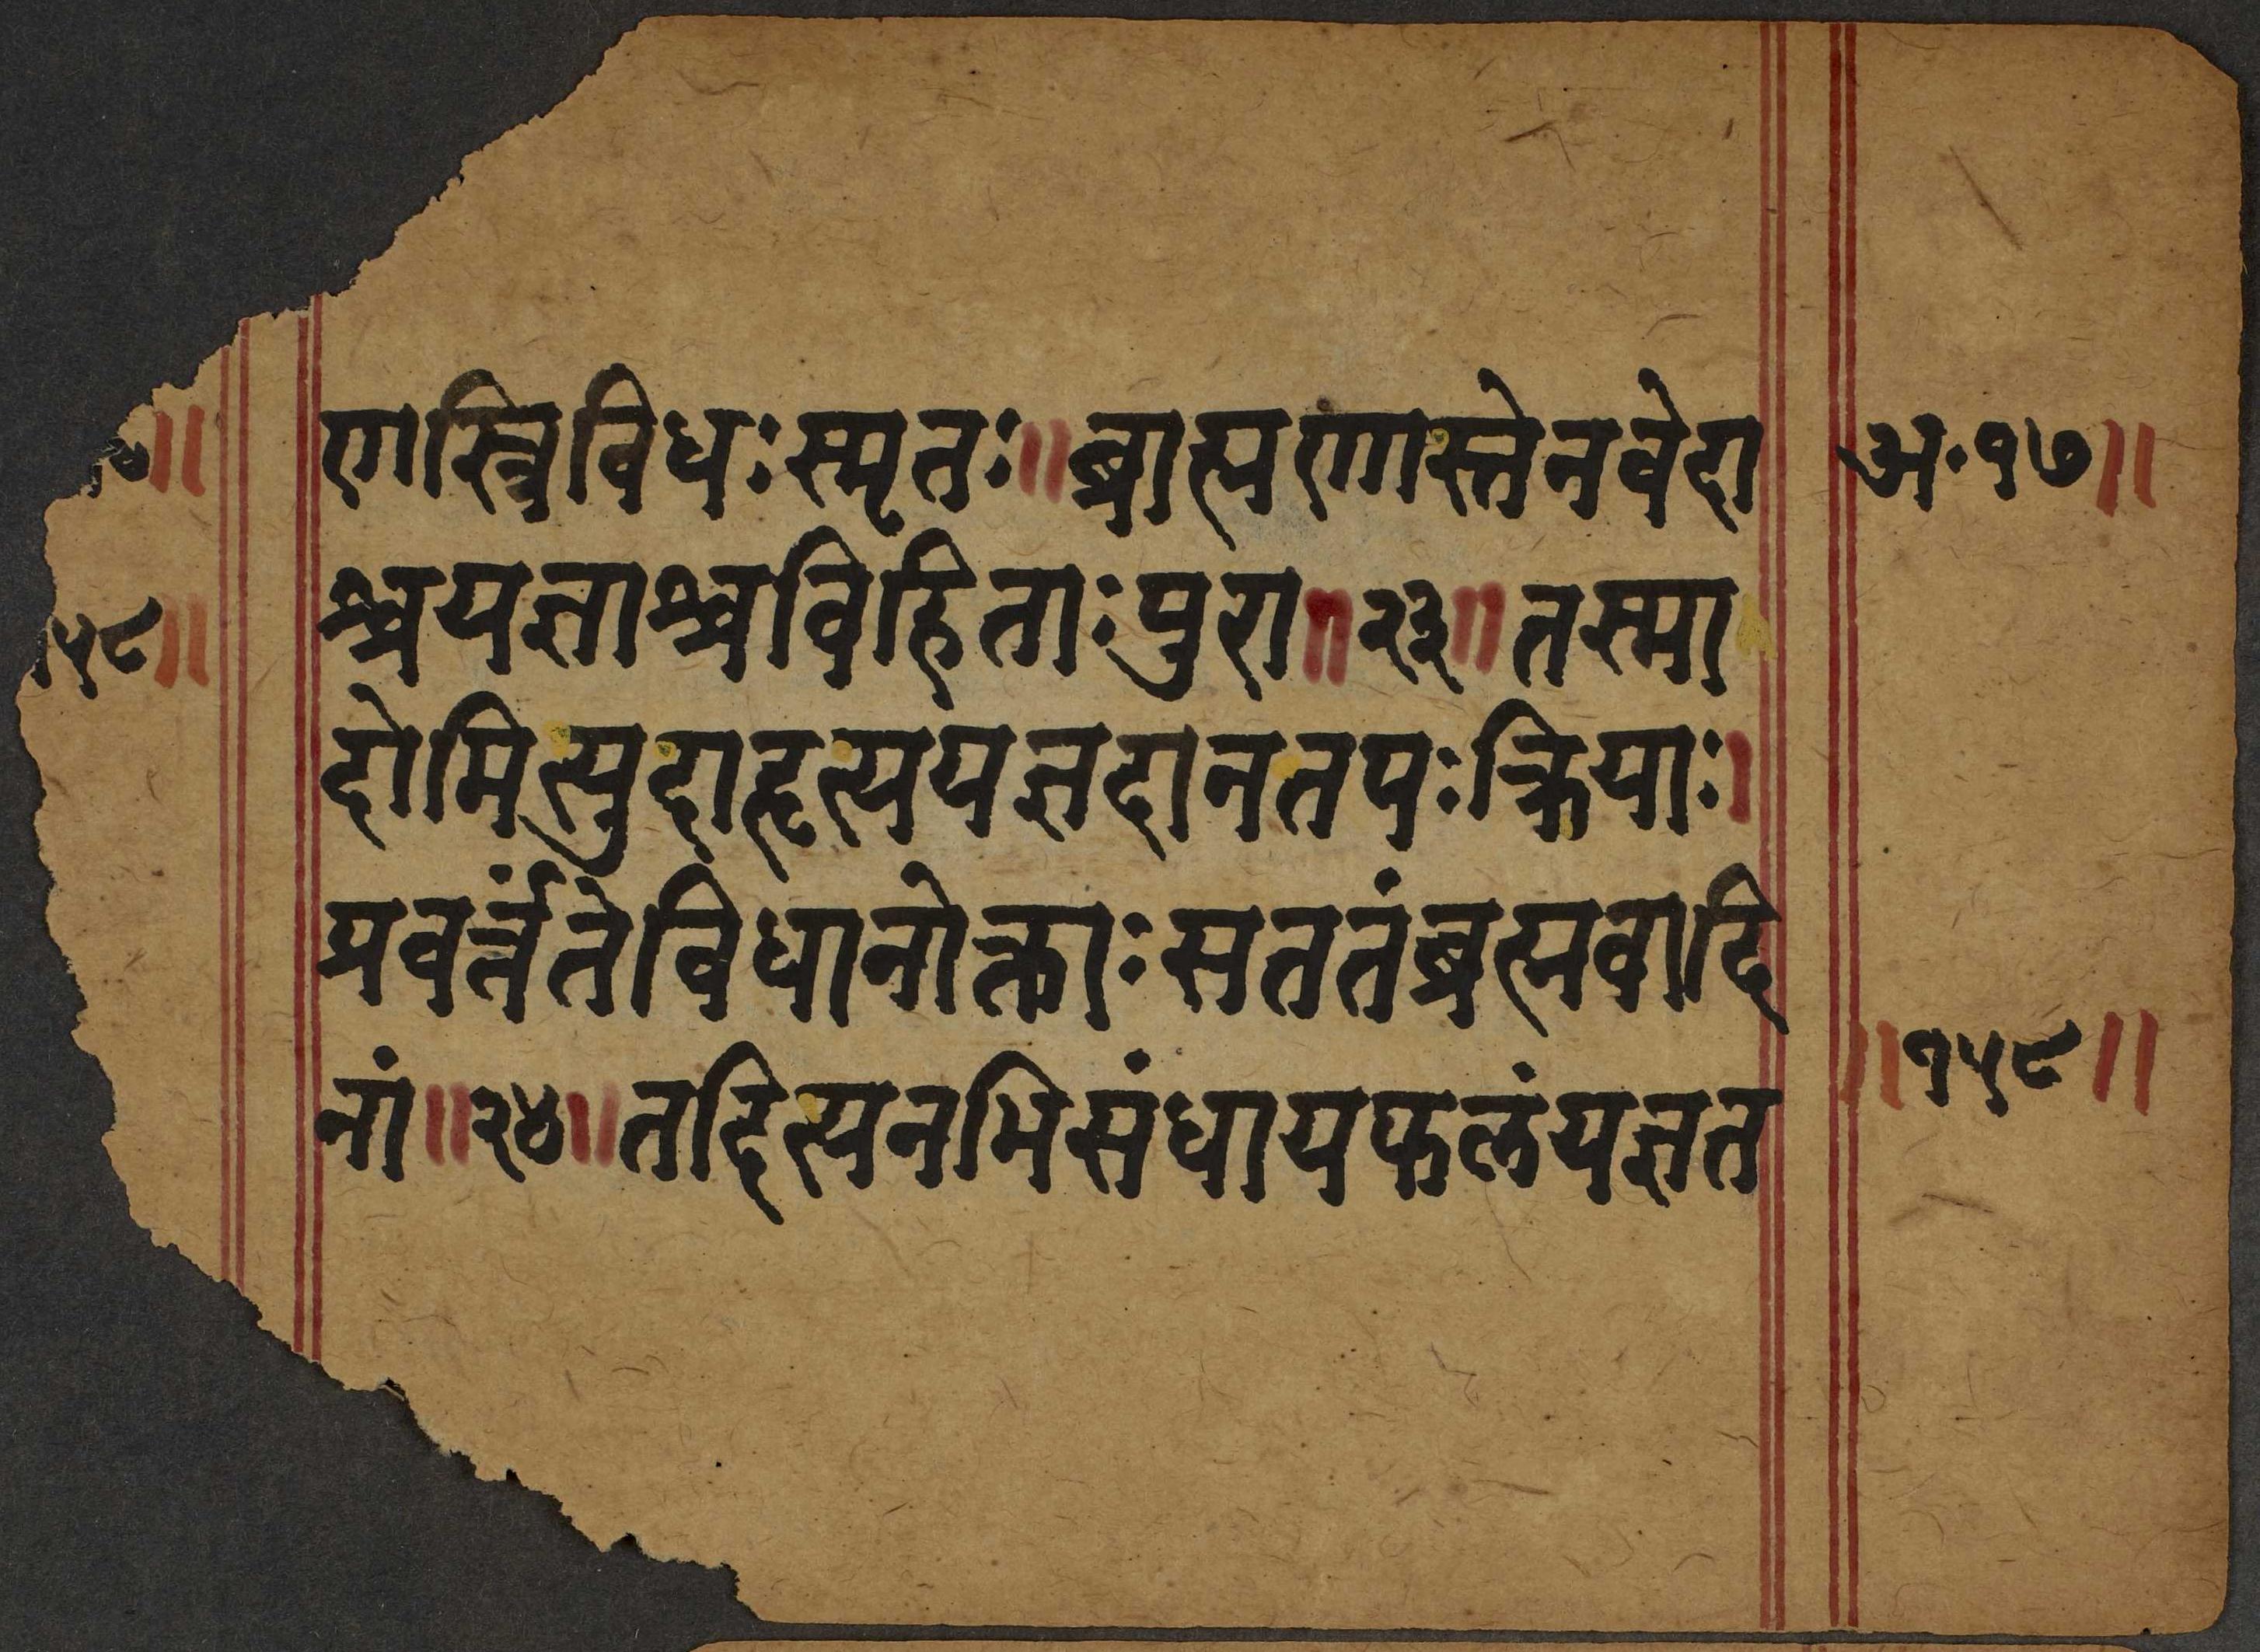 णस्त्रिविधःस्मृतः॥ब्राह्मणास्तेनवेदा
अ॰१७॥
श्चयज्ञाश्चविहिताःपुरा॥२३॥तस्मा
५९॥
दोमित्युदाहृत्ययज्ञदानतपःक्रियाः।
प्रवर्त्तंतेविधानोक्ताःसततंब्रह्मवादि
॥१५९॥
नां॥२४॥तदित्यनभिसंधायफलंयज्ञत